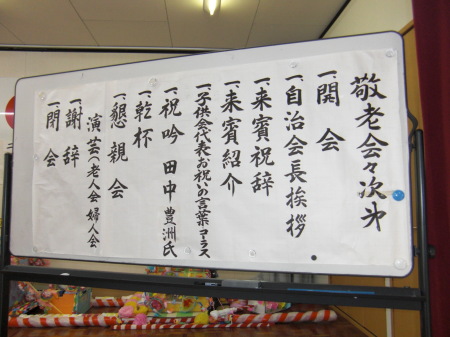 敬老会々次第
一、開会
一、自治会長挨拶
一、来賓祝辞
一、来賓紹介
一、子供会代表お祝いの言葉コーラス
一、祝吟 田中豊洲氏
一、乾杯
一、懇親会
演芸(老人会婦人会
一、謝辞
一、閉会